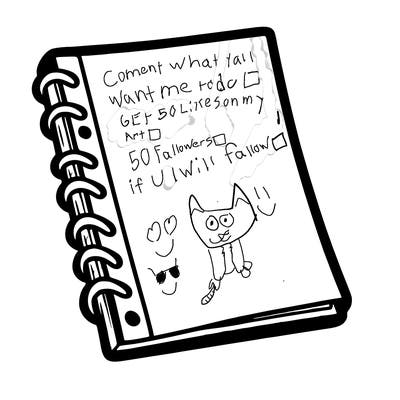 Coment what Yall
want me to do
GET 50 Likes on my
Art
50 Fallowers
if U I Will fallow